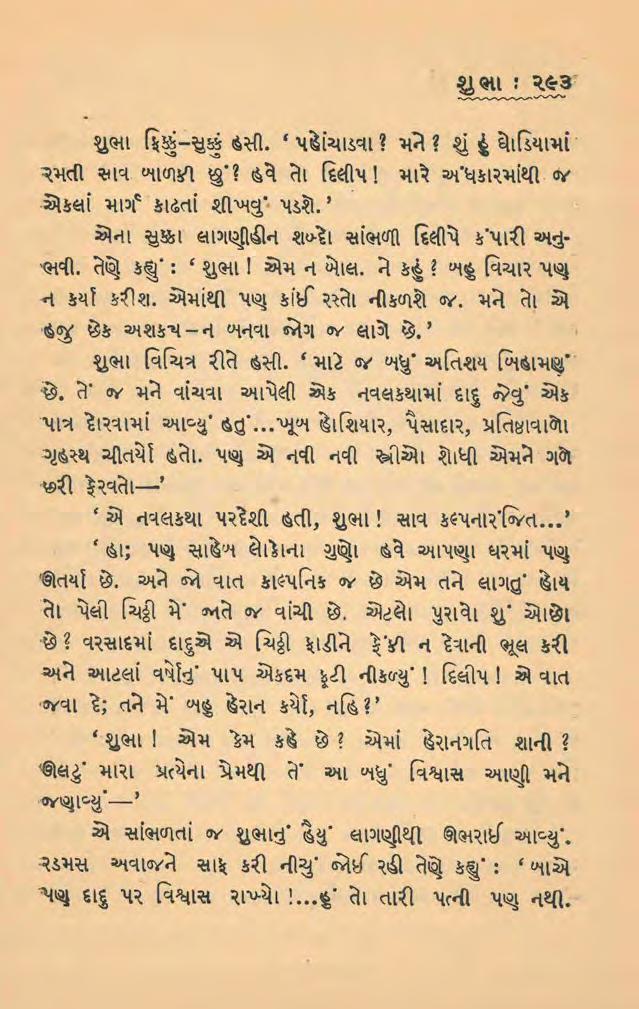 શુભા : ૨૯૩
શુભા ફિક્કું-સુક્કું હસી. ‘ પહોંચાડવા ? મને ? શું હું ઘોડિયામાં
રમતી સાવ બાળકી છું ? હવે તો દિલીપ ! મારે અંધકારમાંથી જ
એકલાં માર્ગ કાઢતાં શીખવું પડશે. ’
એના સુક્કા લાગણીહીન શબ્દો સાંભળી દિલીપે કંપારી અનુ-
ભવી. તેણે કહ્યું : ‘ શુભા ! એમ ન બોલ. ને કહું ? બહુ વિચાર પણ
ન કર્યા કરીશ. એમાંથી પણ કાંઈ રસ્તો નીકળશે જ. મને તો એ
હજુ છેક અશક્ય – ન બનવા જોગ જ લાગે છે. ’
શુભા વિચિત્ર રીતે હસી. ‘ માટે જ બધું અતિશય બિહામણું
છે. તેં જ મને વાંચવા આપેલી એક નવલકથામાં દાદુ જેવું એક
પાત્ર દોરવામાં આવ્યું હતું...ખૂબ હોશિયાર, પૈસાદાર, પ્રતિષ્ઠાવાળો
ગૃહસ્થ ચીતર્યો હતો. પણ એ નવી નવી સ્ત્રીઓ શોધી એમને ગળે
છરી ફેરવતો—’
‘ એ નવલકથા પરદેશી હતી, શુભા ! સાવ કલ્પનારંજિત...’
‘ હા; પણ સાહેબ લોકોના ગુણો હવે આપણા ઘરમાં પણ
ઊતર્યા છે. અને જો વાત કાલ્પનિક જ છે એમ તને લાગતું હોય
તો પેલી ચિઠ્ઠી મેં જાતે જ વાંચી છે. એટલો પુરાવો શું ઓછો
છે ? વરસાદમાં દાદુએ એ ચિઠ્ઠી ફાડીને ફેંકી ન દેવાની ભૂલ કરી
અને આટલાં વર્ષોનું પાપ એકદમ ફૂટી નીકળ્યું ! દિલીપ ! એ વાત
જવા દે; તને મેં બહુ હેરાન કર્યો, નહિ ?’
‘ શુભા ! એમ કેમ કહે છે ? એમાં હેરાનગતિ શાની ?
ઊલટું મારા પ્રત્યેના પ્રેમથી તેં આ બધું વિશ્વાસ આણી મને
જણાવ્યું—’
એ સાંભળતાં જ શુભાનું હૈયું લાગણીથી ઊભરાઈ આવ્યું.
રડમસ અવાજને સાફ કરી નીચું જોઈ રહી તેણે કહ્યું : ‘ બાએ
પણ દાદુ પર વિશ્વાસ રાખ્યો !...હું તો તારી પત્ની પણ નથી.